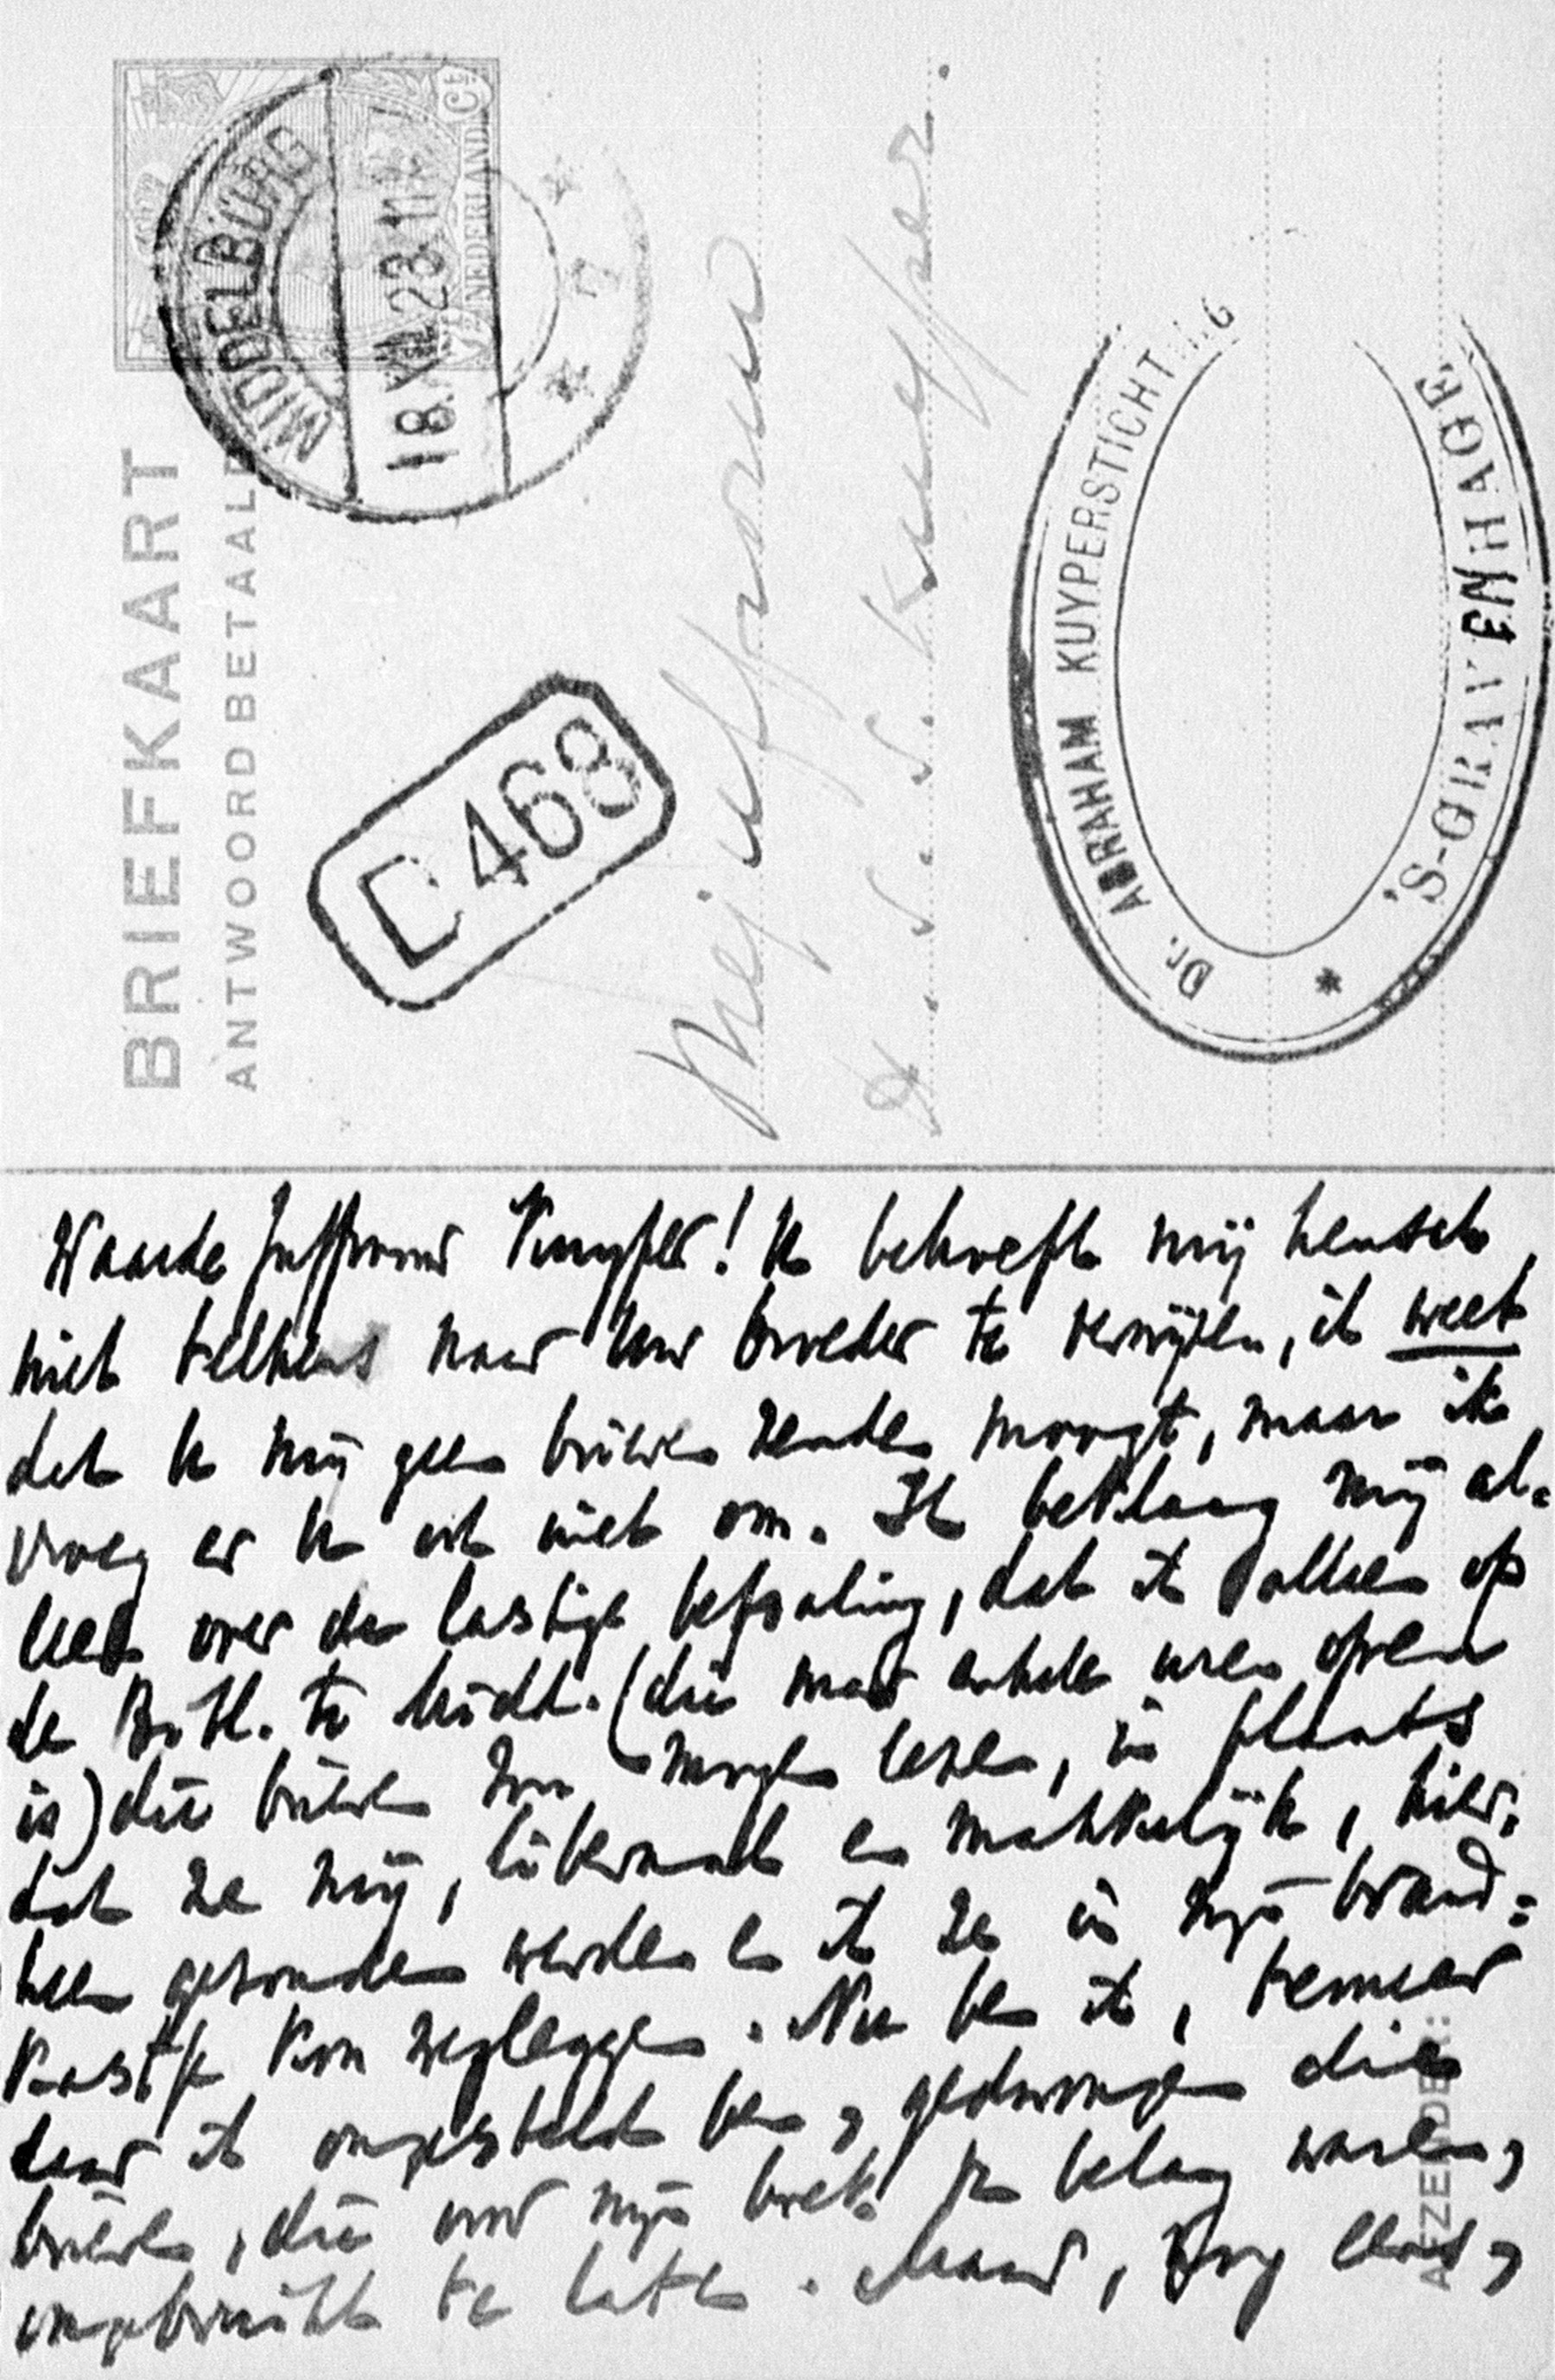 BRIEFKAART
ANTWOORD BETAALD
NEDERLAND
MIDDELBURG
18.VII.23.11
C468
Mejuffrouw
H. S. S. Kuyper.
Dr. ABRAHAM KUYPERSTICHTING
'S-GRAVENHAGE.
*
AFZENDER:
Waarde Juffrouw Kuyper! U behoeft mij heusch
niet telkens naar Uw broeder te verwijzen, ik weet
dat U mij geen brieven zenden moogt, maar ik
vroeg er U ook niet om. Ik beklaag mij al=
leen over de lastige bepaling, dat ik alleen op
de Bibl. te Midd. (die maar enkele uren open
is) die brieven zou mogen lezen, in plaats
dat ze mij, uitermate en makkelijk, hier=
heen gezonden werden en ik ze in mijn brand=
kastje kon wegleggen. Nu ben ik, temeer
daar ik ongesteld ben, gedwongen die
brieven, die voor mijn boek van belang waren,
ongebruikt te laten. Maar,